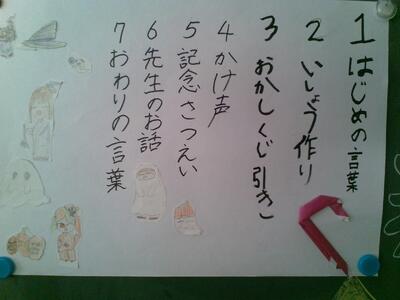 1 はじめの言葉
2 いしょう作り
3 おかしくじ引き
4 かけ声
5 記念さつえい
6 先生のお話
7 おわりの言葉